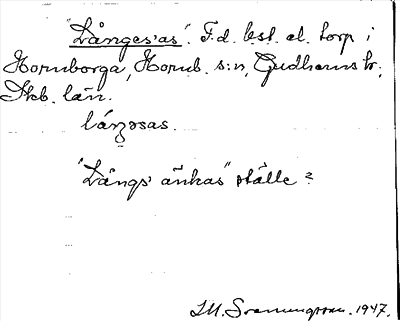 "Långes:as". F.d. lest. el. torp i
Hornborga, Hornb. s:n, Gudhems hr,
Skb. län.
låŋəsas.
"Längs' änkas" ställe?
1947.